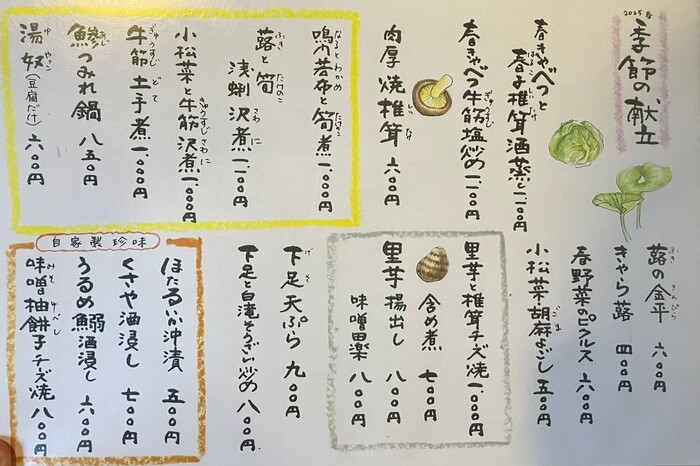 2025春
季節の献立
春きゃべつと
春子椎茸酒蒸し 一、一〇〇円
春きゃべつ牛筋塩炒め 一、一〇〇円
肉厚焼椎茸 六〇〇円
鳴門若布と筍煮 一、〇〇〇円
蕗と筍
浅蜊沢煮 一、〇〇〇円
小松菜と牛筋沢煮 一、〇〇〇円
牛筋土手煮 一、〇〇〇円
鯵つみれ鍋 八五〇円
湯奴(豆腐だけ) 六〇〇円
蕗の金平 六〇〇円
きゃら蕗 四〇〇円
春野菜のピクルス 六〇〇円
小松菜胡麻よごし 五〇〇円
里芋と椎茸チーズ焼 一、〇〇〇円
含め煮 七〇〇円
里芋揚出し 八〇〇円
味噌田楽 八〇〇円
下足天ぷら 九〇〇円
下足と白滝そうざい炒め 八〇〇円
自家製珍味
ほたるいか沖漬 五〇〇円
くさや酒浸し 七〇〇円
うるめ鰯酒浸し 六〇〇円
味噌柚餅子チーズ焼 八〇〇円